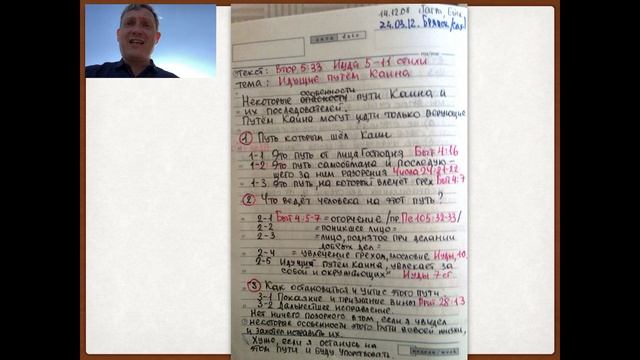 14.12.08
24.03.12. Брянск
дата date
текст: Втор 5:33 Иуда 5-11 стихи
тема: Идущие путём Каина
особенности
Некоторые опасности пути Каина и
их последователей.
Путём Каина могут идти только верующие
1 Путь которым шёл Каин
1-1 Это путь от лица Господня Быт 4:16
1-2 Это путь самообмана и последую-
щего за ним разорения Числа 24:21-22
1-3 Это путь, на который влечёт грех Быт 4:7
2 Что ведёт человека на этот путь?
2-1 Быт 4:5-7 = огорчение /пр Пс 105:32-33/
2-2 = поникшее лицо =
2-3 = лицо, поднятое при делании
добрых дел =
2-4 = увлечение грехом, злословие Иуды, 10
2-5 Идущий путём Каина, увлекает за
собой и окружающих" Иуды 7 ст
3 Как остановиться и уйти с этого пути
3-1 Покаяние и признание вины Прит 28:13
3-2 Дальнейшее исправление.
Нет ничего позорного в том, если я увидел
некоторые особенности этого пути в своей жизни,
и захотел исправить их.
Хуже, если я останусь на
этом пути и буду упорствовать
неделя/week